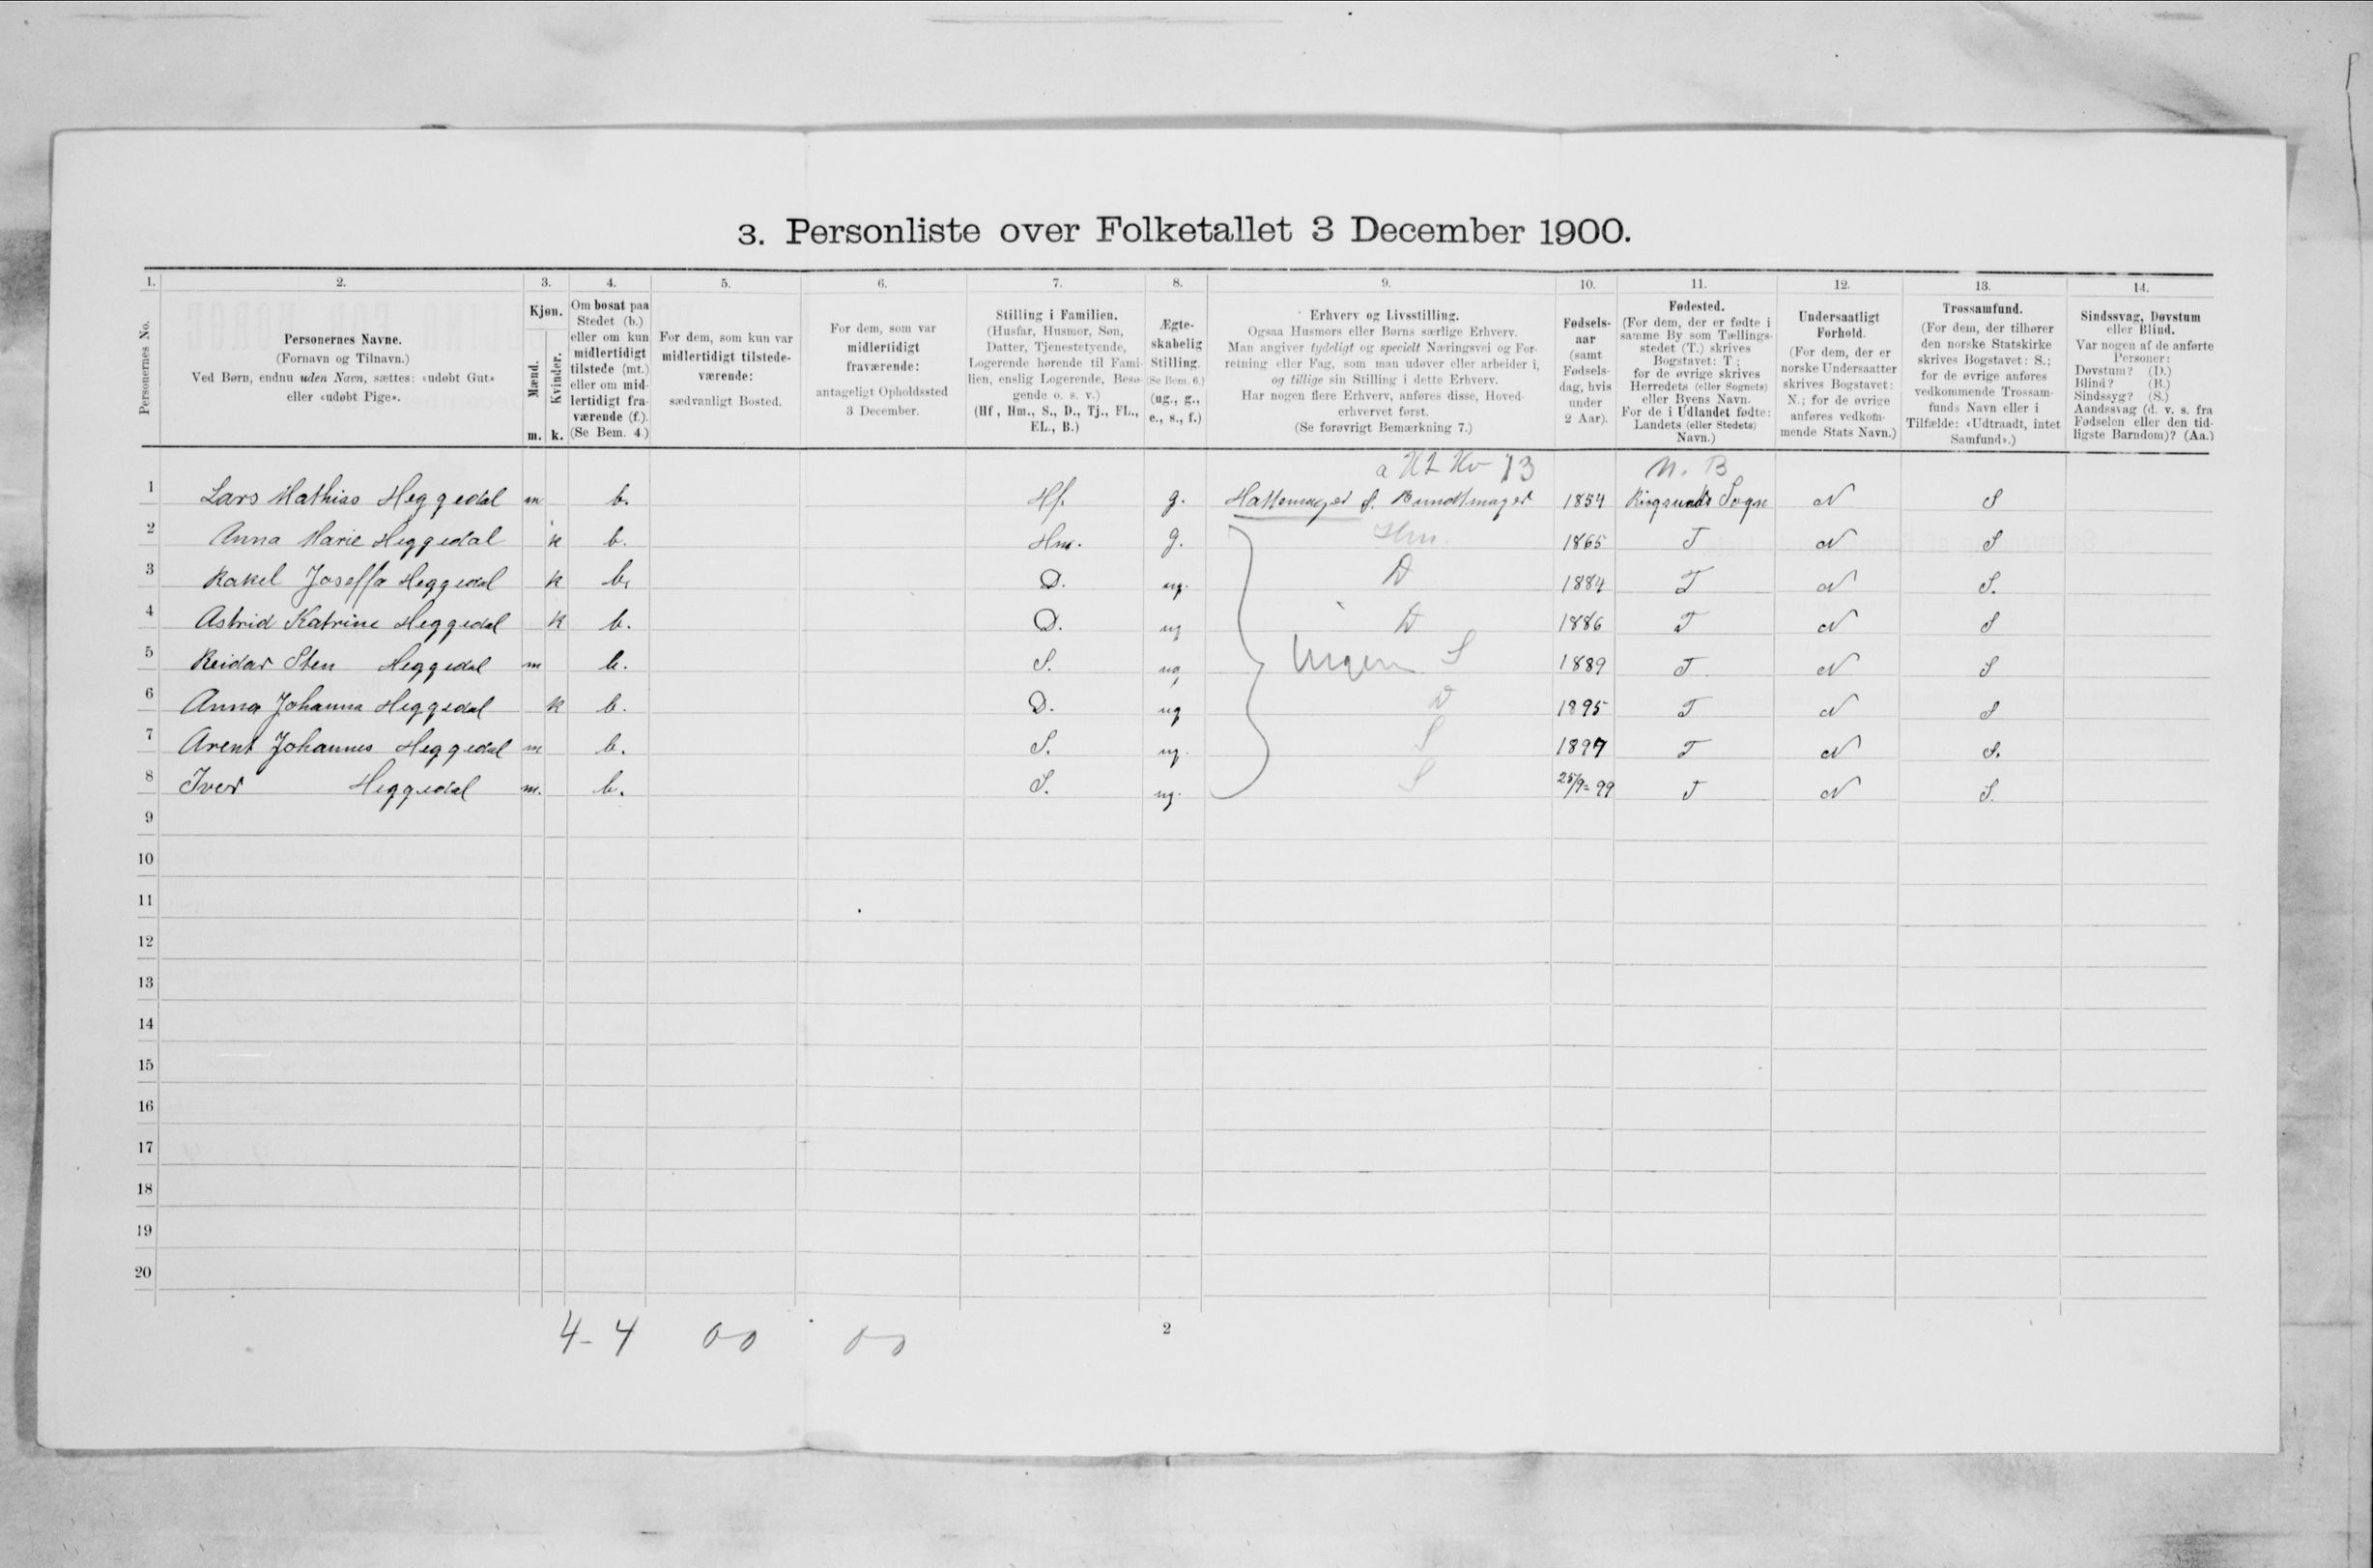 3. Personliste over Folketallet 3 December 1900.
1. 2. 3. 4. 5. 6. 7. 8. 9. 10. 11. 12. 13. 14.
Personernes No.
Personernes Navne.
(Fornavn og Tilnavn.)
Ved Børn, endnu uden Navn, sættes: «udøbt Gut»
eller «udøbt Pige».
Kjøn.
Mænd.
Kvinder.
m. k.
Om bosat paa
Stedet (b.)
eller om kun
midlertidigt
tilstede (mt.)
eller om mid-
lertidigt fra-
værende (f.).
(Se Bem. 4.)
For dem, som kun var
midlertidigt tilstede-
værende:
sædvanligt Bosted.
For dem, som var
midlertidigt
fraværende:
antageligt Opholdssted
3 December.
Stilling i Familien.
(Husfar, Husmor, Søn,
Datter, Tjenestetyende,
Logerende hørende til Fami-
lien, enslig Logerende, Besø-
gende o. s. v.)
(Hf, Hm., S., D., Tj., FL.,
EL., B.)
Ægte-
skabelig
Stilling.
(Se Bem. 6.)
(ug., g.,
e., s., f.)
Erhverv og Livsstilling.
Ogsaa Husmors eller Børns særlige Erhverv.
Man angiver tydeligt og specielt Næringsvei og For-
retning eller Fag, som man udøver eller arbeider i,
og tillige sin Stilling i dette Erhverv.
Har nogen flere Erhverv, anføres disse, Hoved-
erhvervet først.
(Se forøvrigt Bemærkning 7.)
Fødsels-
aar
(samt
Fødsels-
dag, hvis
under
2 Aar).
Fødested.
(For dem, der er fødte i
samme By som Tællings-
stedet (T.) skrives
Bogstavet: T.;
for de øvrige skrives
Herredets (eller Sognets)
eller Byens Navn.
For de i Udlandet fødte:
Landets (eller Stedets)
Navn.)
Undersaatligt
Forhold.
(For dem, der er
norske Undersaatter
skrives Bogstavet:
N.; for de øvrige
anføres vedkom-
mende Stats Navn.)
Trossamfund.
(For dem, der tilhører
den norske Statskirke
skrives Bogstavet: S.;
for de øvrige anføres
vedkommende Trossam-
funds Navn eller i
Tilfælde: «Udtraadt, intet
Samfund».)
Sindssvag, Døvstum
eller Blind.
Var nogen af de anførte
Personer:
Døvstum? (D.)
Blind? (B.)
Sindssyg? (S.)
Aandssvag (d. v. s. fra
Fødselen eller den tid-
ligste Barndom)? (Aa.)
N. B
1 Lars Mathias Heggedal m b. Hf. g. Hattemager f. Bundtmager 1854 Sogn N S
2 Anna Marie Heggedal k b. Hm. g. Hm. 1865 T N S
3 Rakel Joseffa Heggedal k b. D. ug. D 1884 T N S.
4 Astrid Katrine Heggedal k b. D. ug D 1886 T N S
5 Reidar Sten Heggedal m b. S. ug, Ingen S 1889 T N S
6 Anna Johanna Heggedal k b. D. ug D 1895 T N S
7 Arent Johannes Heggedal m b. S. ug. S 1897 T N S.
8 Iver Heggedal m. b. S. ug. S 25/9-99 T N S.
9
10
11
12
13
14
15
16
17
18
19
20
4-4 00 00
2